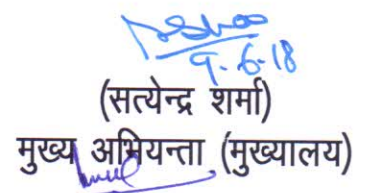 9-6-18
(सत्येन्द्र शर्मा)
मुख्य अभियन्ता (मुख्यालय)